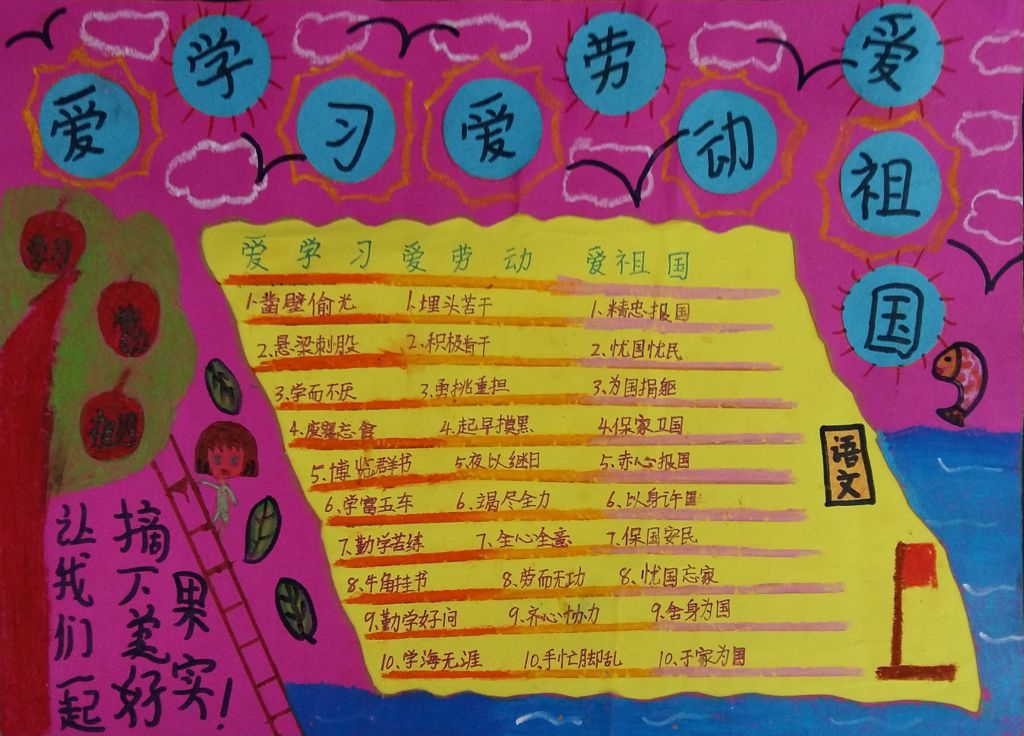 爱学习爱劳动爱祖国
爱学习 爱劳动 爱祖国
1.凿壁偷光 1.埋头苦干 1.精忠报国
2.悬梁刺股 2.积极肯干 2.忧国忧民
3.学而不厌 3.勇挑重担 3.为国捐躯
4.废寝忘食 4.起早摸黑 4.保家卫国
5.博览群书 5.夜以继日 5.赤心报国
6.学富五车 6.竭尽全力 6.以身许国
7.勤学苦练 7.全心全意 7.保国安民
8.牛角挂书 8.劳而无功 8.忧国忘家
9.勤学好问 9.齐心协力 9.舍身为国
10.学海无涯 10.手忙脚乱 10.于家为国
学习
劳动
祖国
语文
让我们一起
摘下美好
果实!